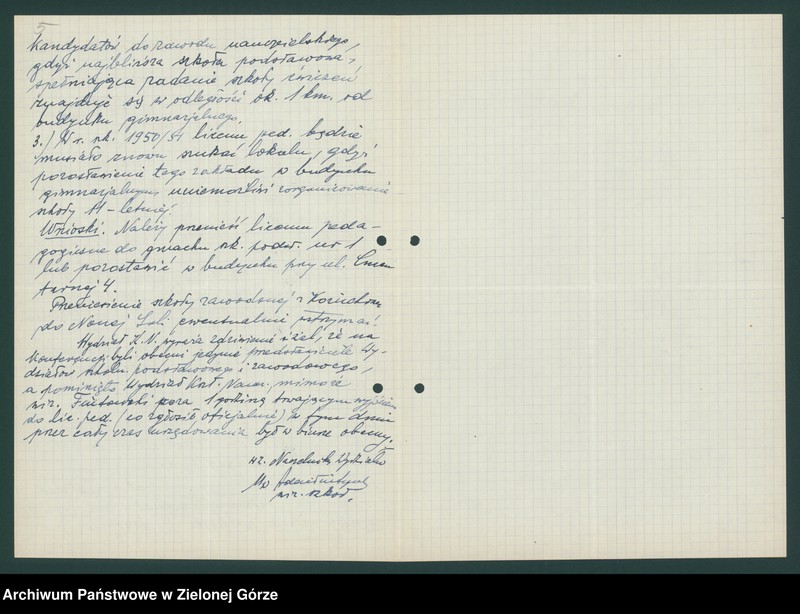 5
kandydatów do zawodu nauczycielskiego,
gdyż najbliższa szkoła podstawowa,
spełniająca zadanie szkoły ćwiczeń
znajduje się w odległości ok. 1 km. od
budynku gimnazjalnego.
3./ W r. szk. 1950/51 liceum ped. będzie
musiało znowu szukać lokalu, gdyż
pozostawienie tego zakładu w budynku
gimnazjalnym uniemożliwi zorganizowanie
szkoły 11-letniej.
Wnioski. Należy przenieść liceum peda-
gogiczne do gmachu szk. podst. nr 1
lub pozostawić w budynku przy ul. Cmen
tarnej 4.
Przeniesienie szkoły zawodowej z Kożuchowa
do Nowej Soli ewentualnie wstrzymać.
Wydział K.N. wyraża zdziwienie i żal, że na
konferencji byli obecni jedynie przedstawiciele Wy-
działów szkoln. podstawowego i zawodowego,
a pominięto Wydział Kszt. Naucz. mimo że
wiz. poza 1 godziną trwającym wyjściem
do lic. ped. (co zgłosił oficjalnie) w tym dniu
przez cały czas urzędowania był w biurze obecny.
wz. Naczelnika Wydziału
wiz. szkół.
Archiwum Państwowe w Zielonej Górze